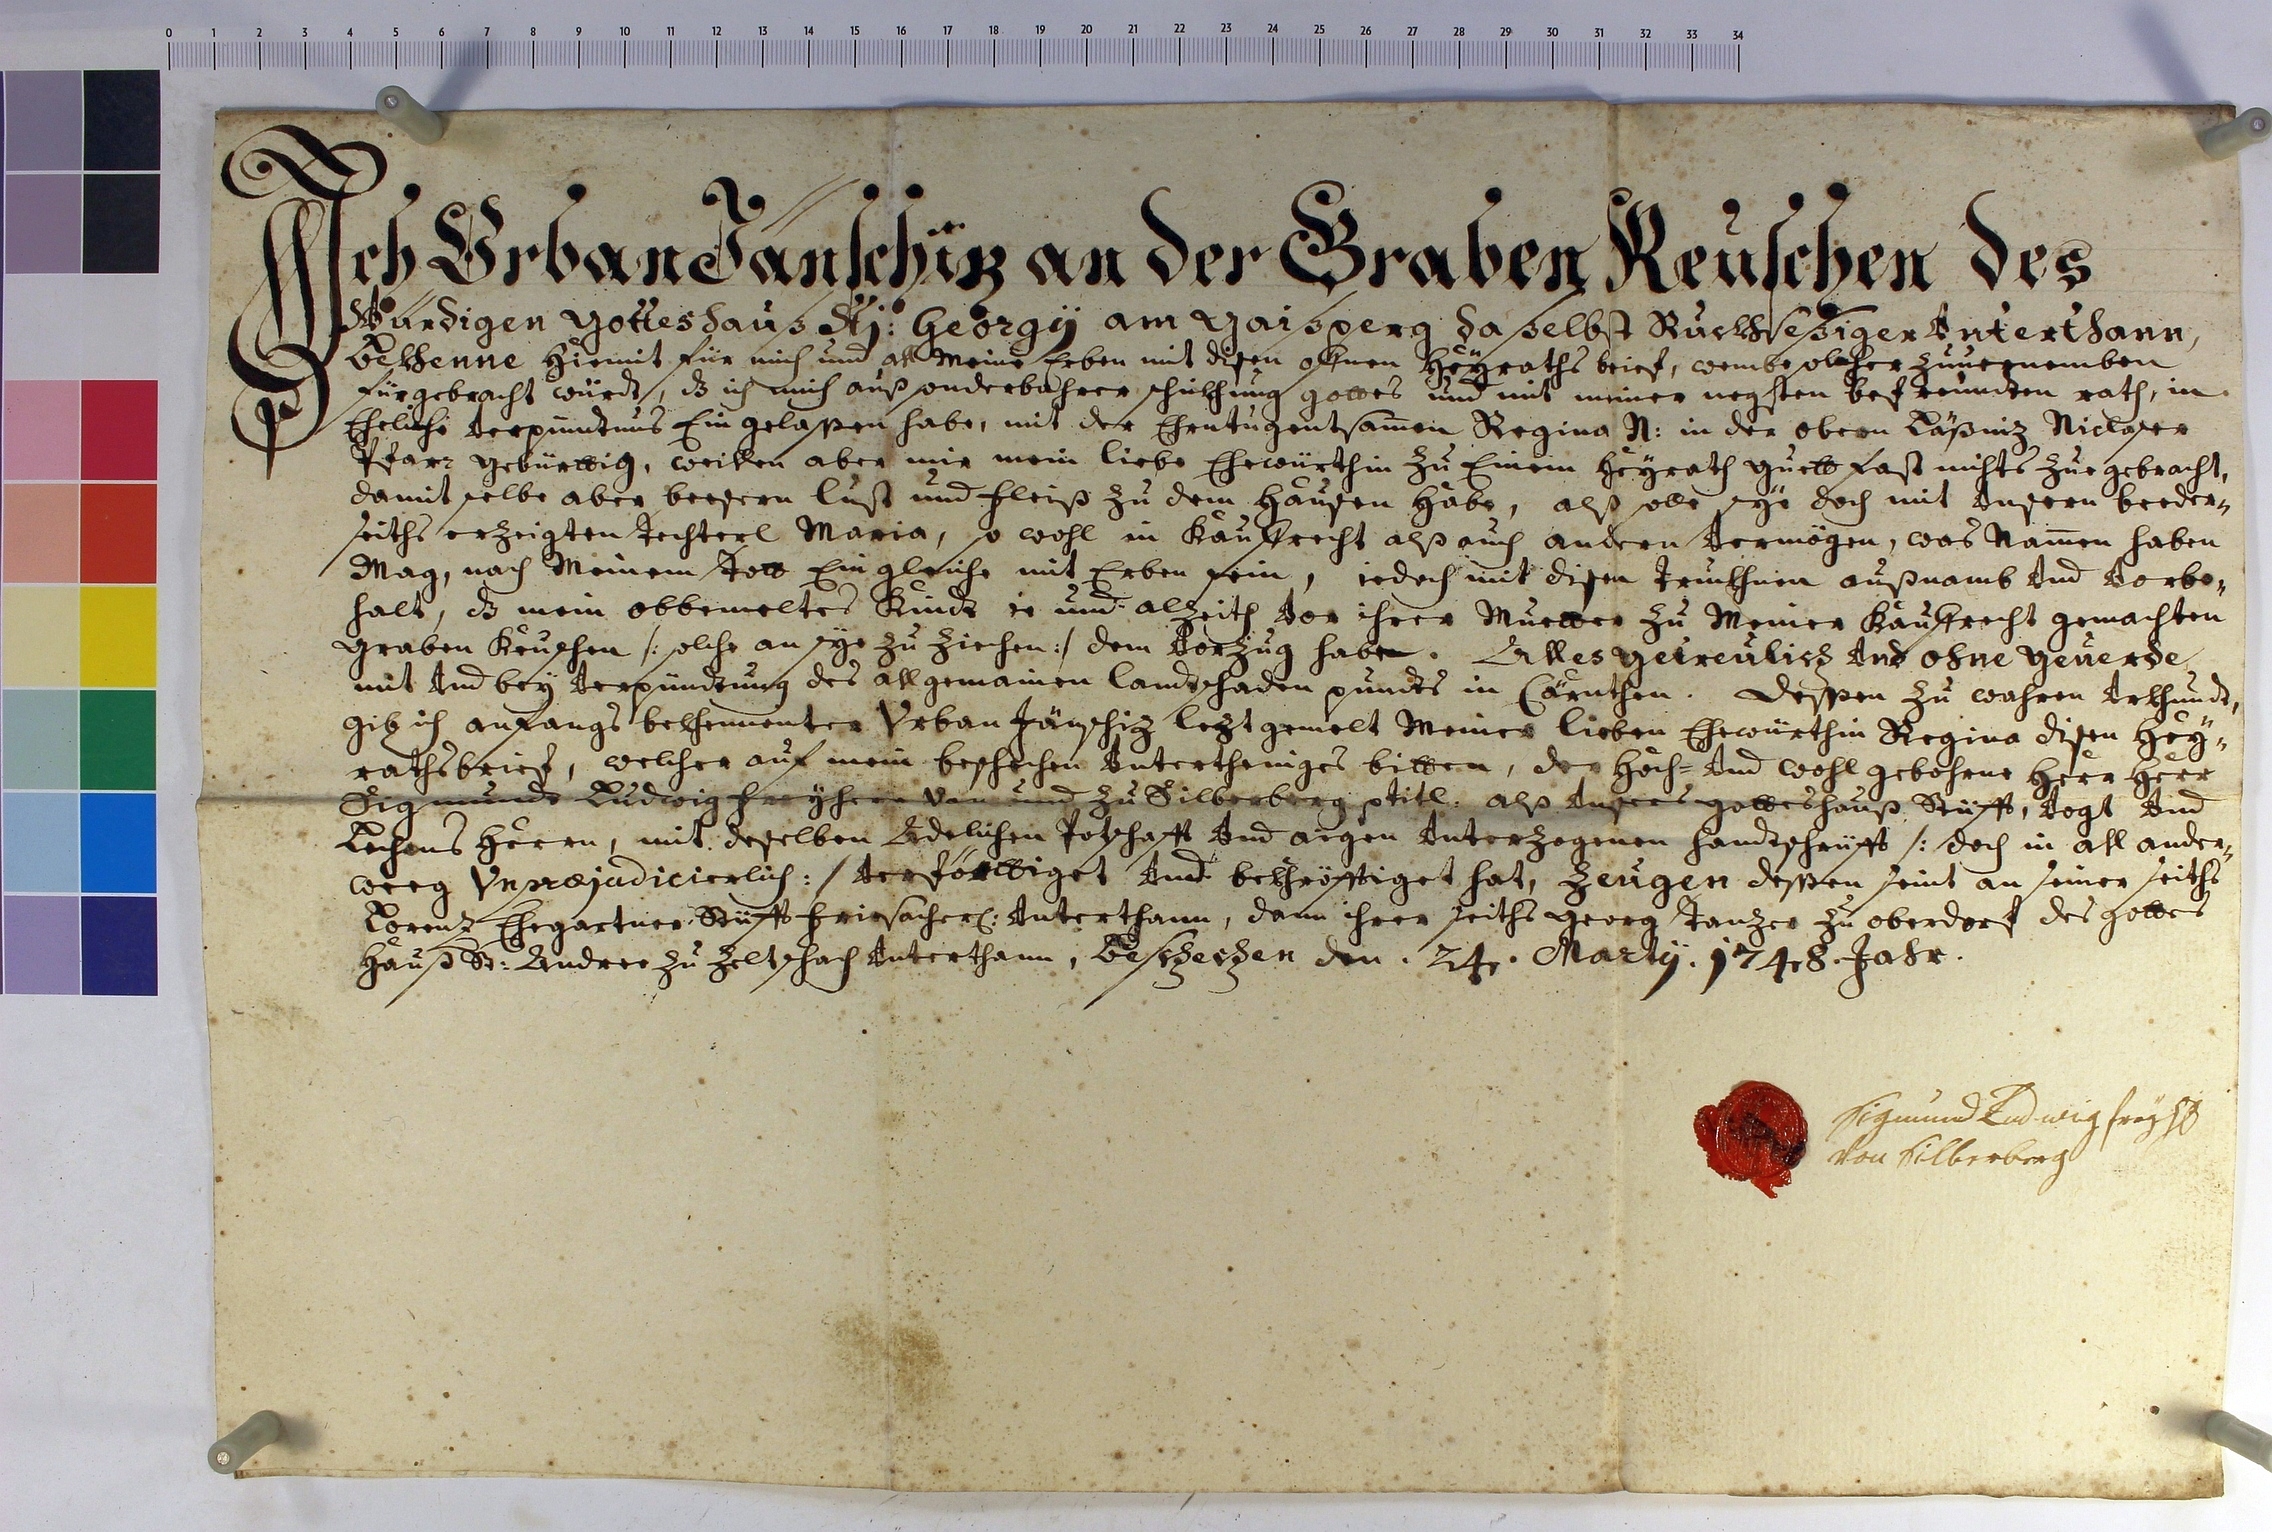 0 1 2 3 4 5 6 7 8 9 10 11 12 13 14 15 16 17 18 19 20 21 22 23 24 25 26 27 28 29 30 31 32 33 34
Ich Urban Jänschiz an der Graben Keuschen des
Würdigen Gotteshauß Sti: Georgy am Gaisperg daselbst Ruckhsesiger Unterthann,
Bekhenne hiemit für mich und all Meine Erben mit disen offnen Heyraths brief, wembe solcher zuuernemben
fürgebracht würdt, dz ich mich auß sonderbahrer schikhung gottes und mit meiner negsten befreundten rath, in
Eheliche verpundtnus Ein gelassen habe, mit der Ehrntugentsamen Regina N: in der obern Läßniz Niclaser
Pfarr gebürttig, weillen aber mir mein liebe Ehewürthin zu Einem Heyrath guett fast nichts zue gebracht,
damit selbe aber bessern lust und fleiß zu dem Hausen habe, alß solle sye doch mit unsern beeder-
seiths erzeigten Techterl Maria, so wohl in Kauffrecht alß auch andern vermögen, was Namen haben
Mag, nach Meinem Todt Ein gleiche mit Erben sein, iedoch mit disen außnamb und vorbe-
halt, dz mein obbemeltes Kindt ie und alzeith vor ihrer Muetter zu Meiner Kauffrecht gemachten
Graben Keuschen /: solche an sye zu ziehen :/ dem vorzug habe. Alles getreulich und ohne geuerde
mit und bey verpündtung des allgemainen landtschaden pundts in Cärnthen. Dessen zu wahren Urkhundt,
gib ich anfangs bekhennenter Urban Jänschiz lezt gemelt Meiner lieben Ehewürthin Regina disen Hey-
rathsbrief, welcher auf mein beschechen untertheniges bitten, der Hoch- und wohl gebohrne Herr Herr
Sigmundt Ludwig freyherr von und zu Silberberg ptitl. alß unsers gotteshauß Stüffts, Vogt und
Lechens Herrn, mit deselben Adelichen Potschafft und aigen unterzogenen handtschrüfft /: doch in all ander-
weeg Unpræjudicierlich :/ verförttiget und bekhröfftiget hat, Zeugen dessen seint an seiner seiths
Lorenz Ehegartner Stüfft Friesacher: unterthann, dann ihrer seiths Georg Tanzer zu oberdorf des gottes
Hauß St: Andree zu Zeltschach unterthann, Beschechen den 24. Marty. 1748. Jahr.
Sigmund Ludwig freyh
von Silberberg